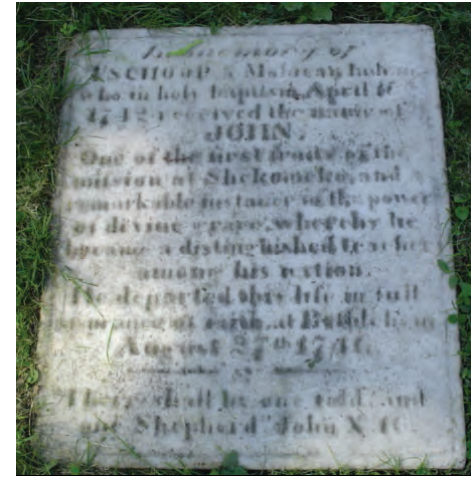 In memory of
TSCHOOP a Mohican Indian
who in holy baptism, April 16
1742 received the name of
JOHN.
One of the first fruits of the
mission at Shekomeko, and
remarkable instance of the power
of divine grace, whereby he
became a distinguished teacher
among his nation.
He departed this life in full
assurance of faith, at Bethlehem
August 27th 1746.
There shall be one fold, and
one Shepherd John X. 16.